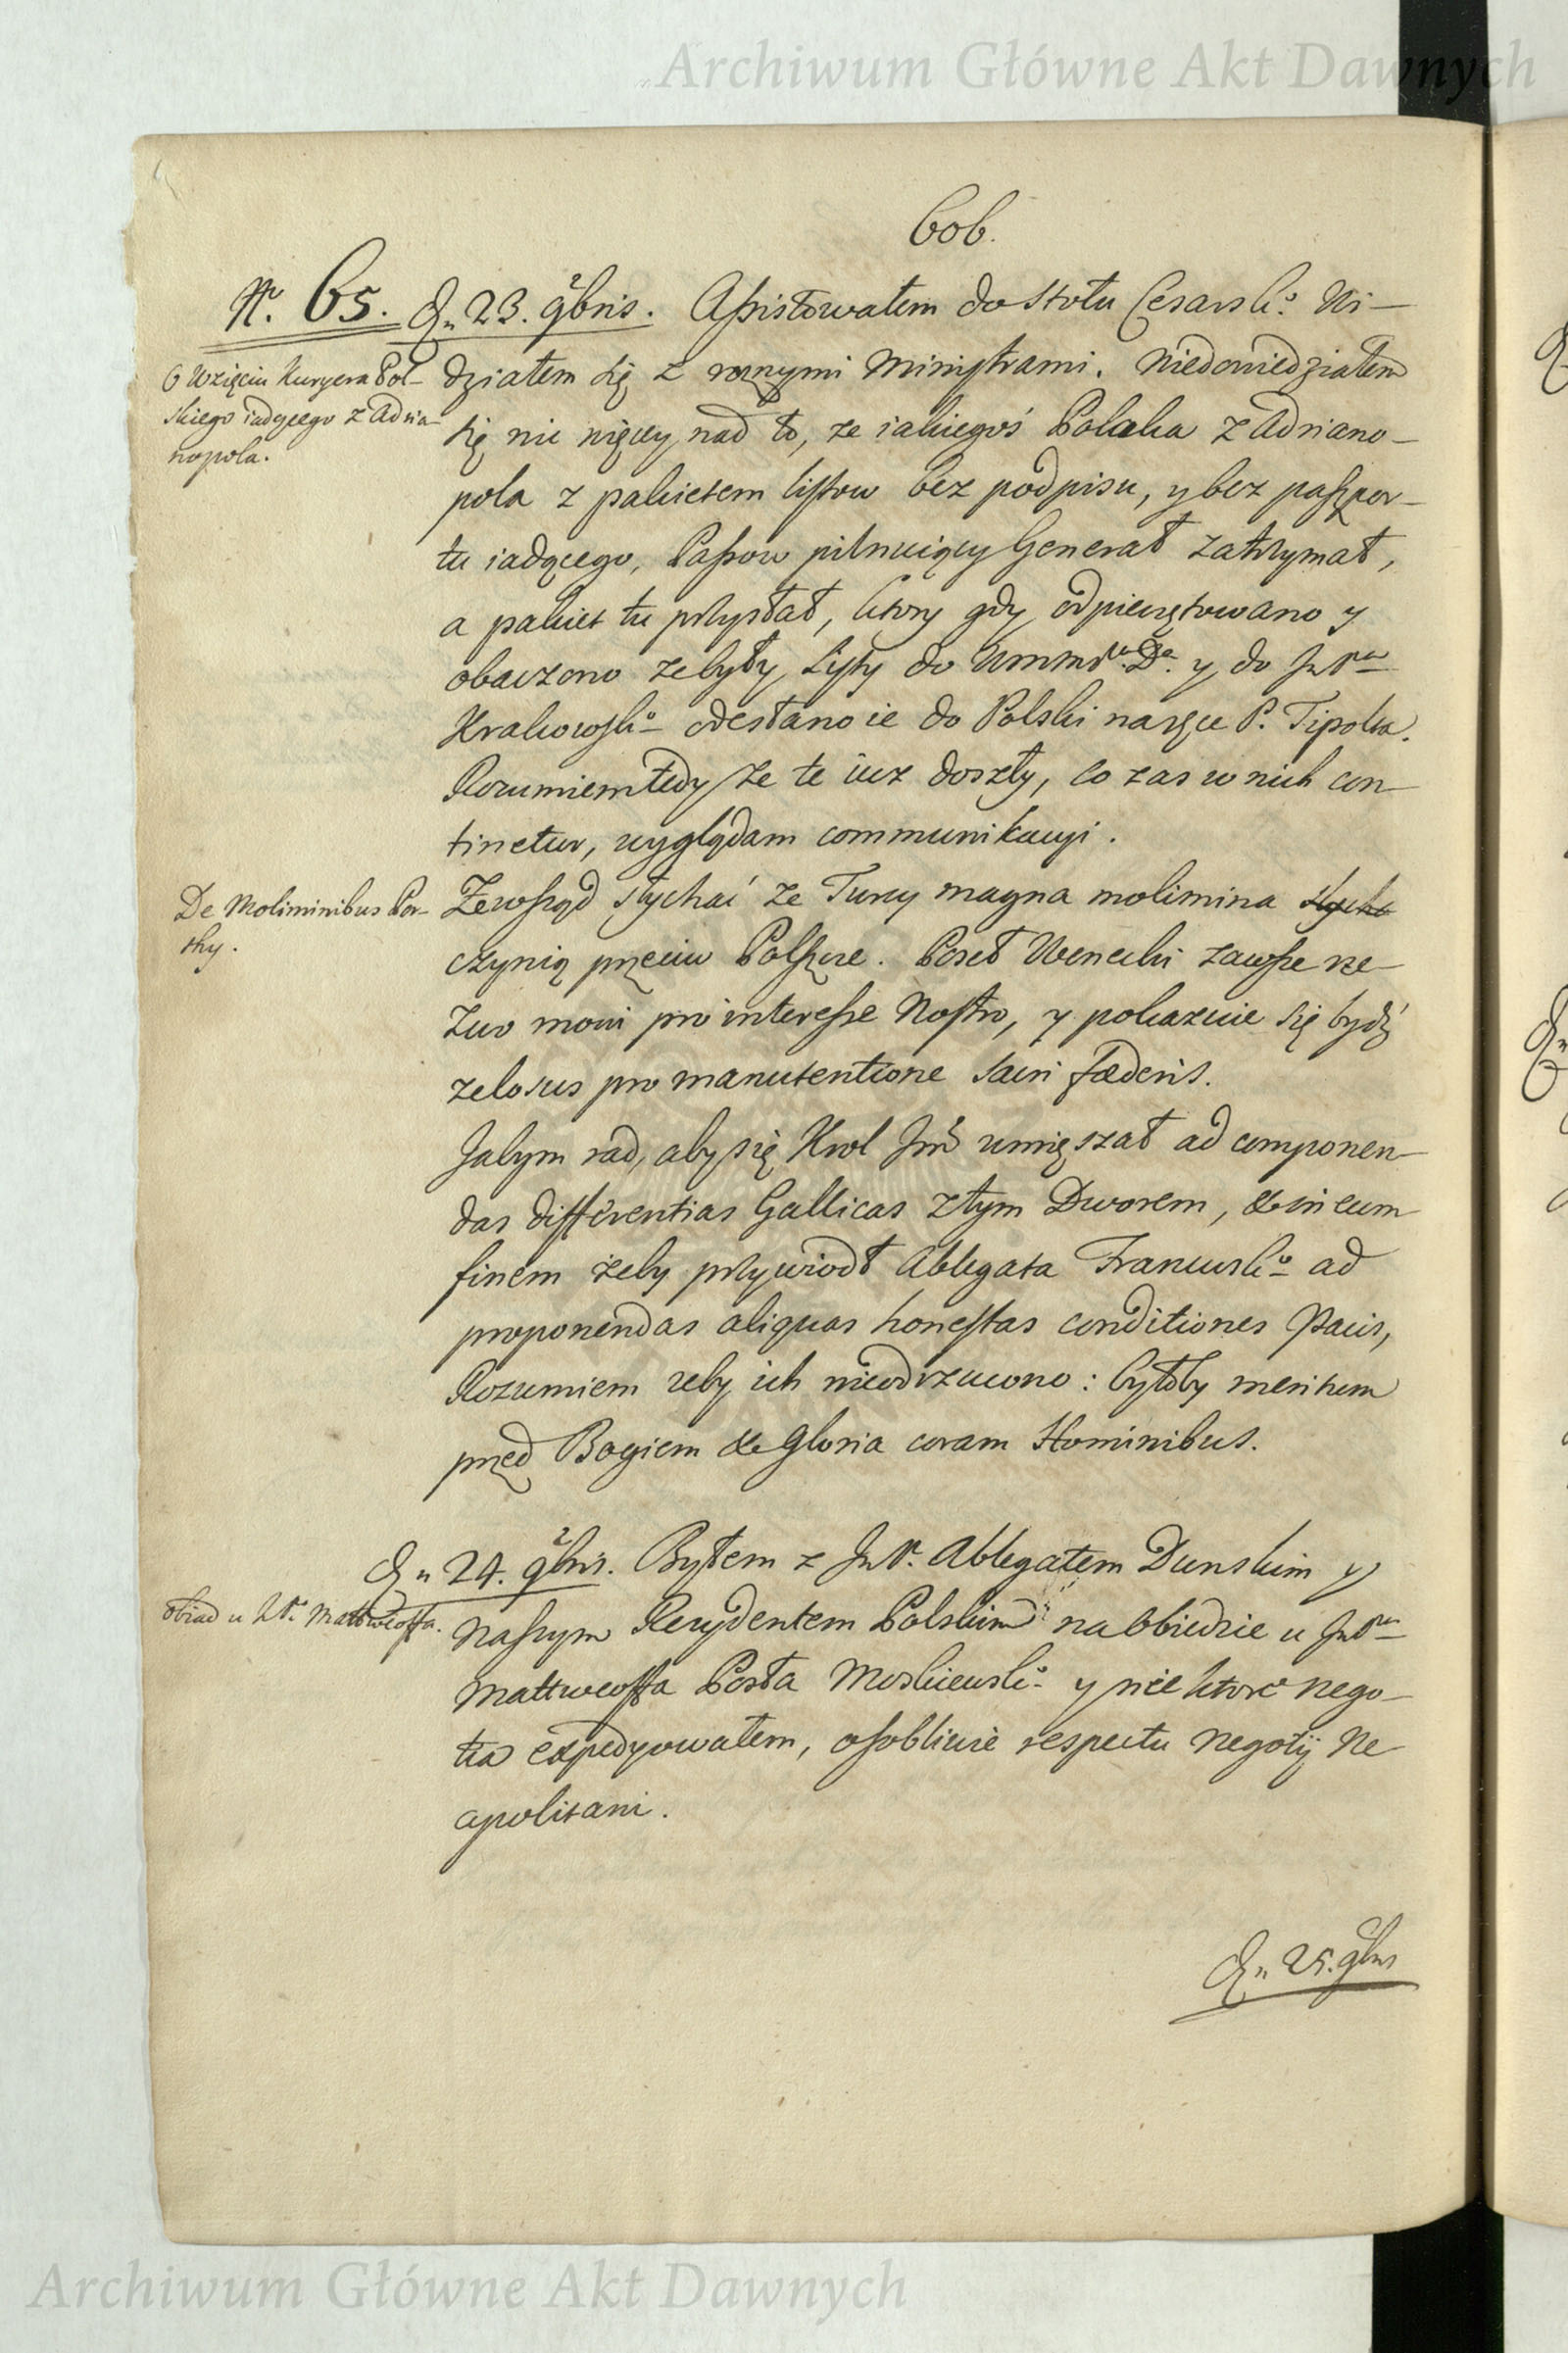 Archiwum Główne Akt Dawnych
606.
Nr. 65. Dn 23. 9bris. Assistowałem do stołu Cesarsko. Wi-
O Wzięciu Kuryera Pol-
skiego iadącego z Adria-
nopola.
działem się z roznymi Ministrami. Niedowiedziałem
się nic więcy nad to, ze iakiegoś Polaka z Adriano-
pola z pakietem listow bez podpisu, y bez paszpor-
tu iadącego, Passow pilnuiący Generał zatrzymał,
a pakiet tu przysłał, ktory gdy odpieczętowano y
obaczono ze były Listy do
Krakowsko odesłano ie do Polski na ręce P. Tipolta.
Rozumiem tedy ze te iuz doszły, co zas w nich con-
tinetur, wyglądam communikacyi.
De Moliminibus Por-
thy.
Zewsząd słychać ze Turcy magna molimina słycha
czynią przeciw Polszcze. Poseł Wenecki zawsze rze-
zwo mowi pro interesse Nostro, y pokazuie się bydź
zelosus pro manutentione sacri fœderis.
Jabym rad, aby się Krol Jmć umięszał ad componen-
das differentias Gallicas z tym Dworem, & in eum
finem żeby przywiodł Ablegata Francusko ad
proponendas aliquas honestas conditiones Pacis,
Rozumiem zeby ich nieodrzucono: byłoby meritum
przed Bogiem & Gloria coram Hominibus.
Dn 24. 9bris. Byłem z JmP. Ablegatem Dunskim y
obiad u JP. Mattweoffa.
Naszym Rezydentem Polskim na Obiedzie u JmPa
Mattweoffa Posła Moskiewsko y niektore nego-
tia expedyowałem, osobliwie respectu negotij Ne-
apolitani.
Dn 25. 9bris
Archiwum Główne Akt Dawnych